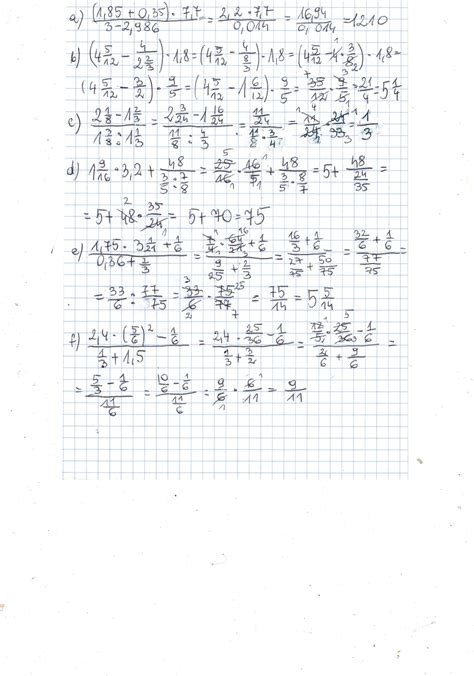 a) ((1,85 + 0,35) · 7,7)/(3 - 2,986) = (2,2 · 7,7)/0,014 = 16,94/0,014 = 1210
b) (4 5/12 - 4/(2 2/3)) · 1,8 = (4 5/12 - 4/(8/3)) · 1,8 = (4 5/12 - 4 · 3/8) · 1,8 =
(4 5/12 - 3/2) · 9/5 = (4 5/12 - 1 6/12) · 9/5 = 35/12 · 9/5 = 21/4 = 5 1/4
c) (2 1/8 - 1 2/3)/(1 3/8 : 1 1/3) = (2 3/24 - 1 16/24)/(11/8 : 4/3) = (11/24)/(11/8 · 3/4) = 11/24 · 32/33 = 1/3
d) 1 9/16 · 3,2 + 48/(3/5 : 7/8) = 25/16 · 16/5 + 48/(3/5 · 8/7) = 5 + 48/(24/35) =
= 5 + 48 · 35/24 = 5 + 70 = 75
e) (1,75 · 3 1/21 + 1/6)/(0,36 + 2/3) = (7/4 · 64/21 + 1/6)/(9/25 + 2/3) = (16/3 + 1/6)/(27/75 + 50/75) = (32/6 + 1/6)/(77/75) =
= 33/6 : 77/75 = 33/6 · 75/77 = 75/14 = 5 5/14
f) (2,4 · (5/6)² - 1/6)/(1/3 + 1,5) = (2,4 · 25/36 - 1/6)/(1/3 + 3/2) = (12/5 · 25/36 - 1/6)/(2/6 + 9/6) =
= (5/3 - 1/6)/(11/6) = (10/6 - 1/6)/(11/6) = 9/6 · 6/11 = 9/11